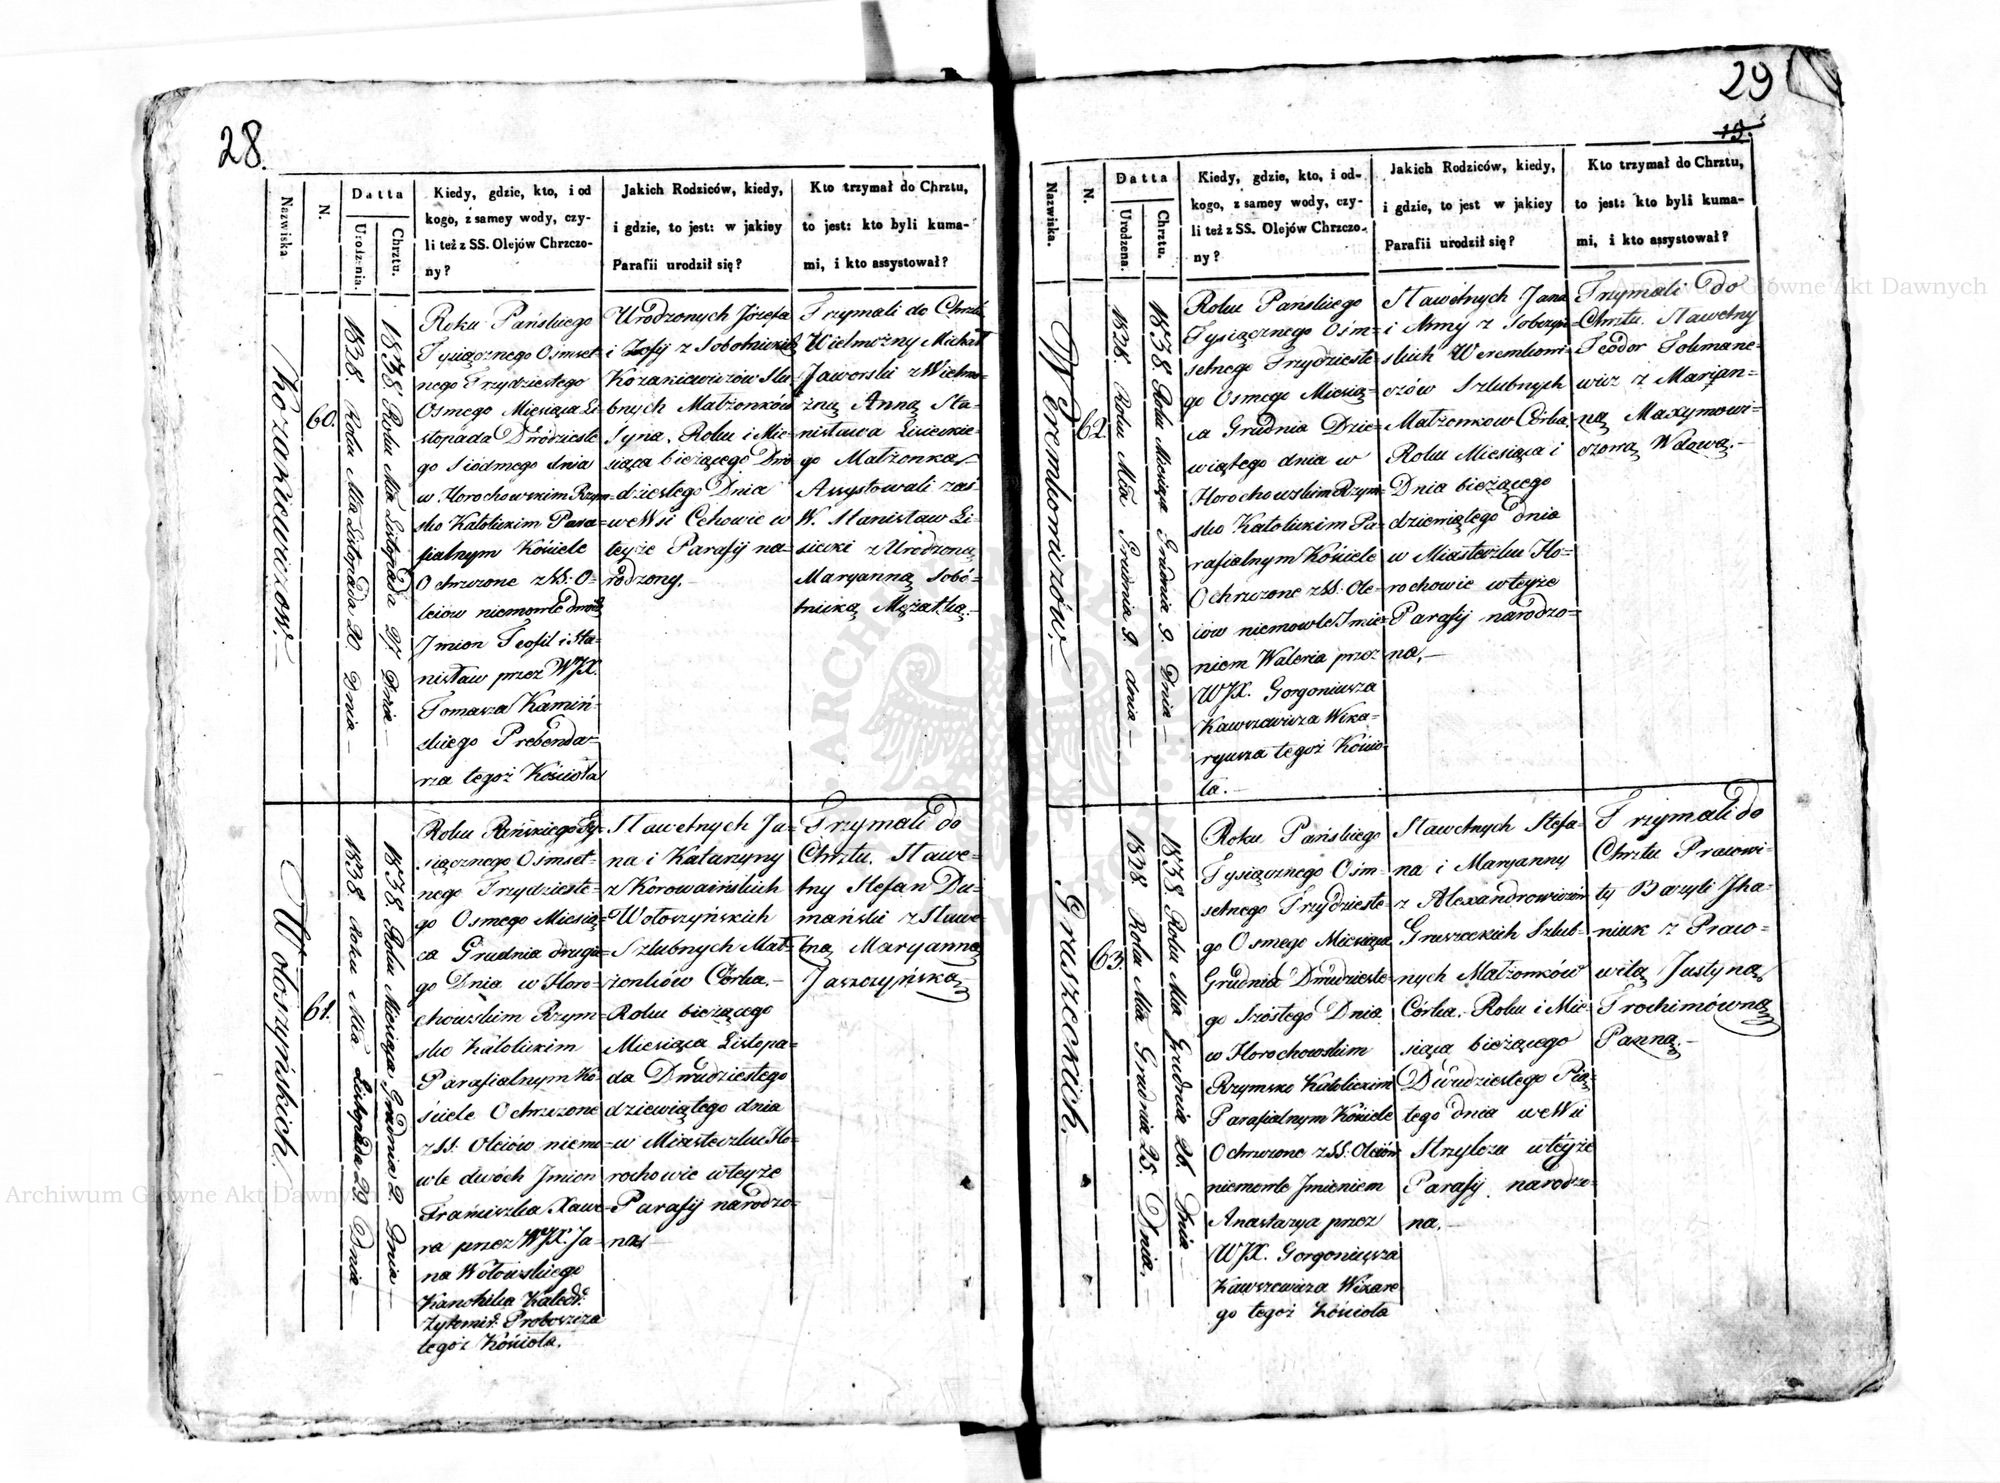 28.
Nazwiska
N.
Datta
Urodzenia.
Chrztu.
Kiedy, gdzie, kto, i od
kogo, z samey wody, czy-
li też z SS. Olejów Chrzczo-
ny?
Jakich Rodziców, kiedy,
i gdzie, to jest: w jakiey
Parafii urodził się?
Kto trzymał do Chrztu,
to jest: kto byli kuma-
mi, i kto assystował?
Kozakiewiczów.
60.
1838. Roku Mca Listopada 20. Dnia
1838 Roku Mca Listopada 27 Dnia
Roku Pańskiego
Tysiącznego Ośmset-
nego Trzydziestego
Osmego Miesiąca Li-
stopada Dwódzieste
go Siódmego dnia
w Horochowskim Rzym-
sko Katolickim Para-
fialnym Kościele
Ochrzczone z SS: O-
leiow niemowle dwóch
Jmion Teofil i Sta-
nisław przez WJX.
Tomasza Kamiń-
skiego Prebenda-
rza tegoż Kościoła
Urodzonych Józefa
i Zofij z Sobotnickich
Kozakiewiczów Slu-
bnych Małżonków
Syna, Roku i Mie-
siąca bieżącego Dwó
dziestego Dnia
we Wsi Cehowie w
teyże Parafij na-
rodzony.
Trzymali do Chrztu
Wielmożny Michał
Jaworski z Wielmo-
żną Anną Sta-
nisława Lisieckie-
go Małżonka
Assystowali zaś
W. Stanisław Li-
siecki z Urodzoną
Maryanną Sobo-
tnicką Mężatką.
Wołoszyńskich.
61.
1838. Roku Mca Listopada 29 Dnia
1838 Roku Miesiąca Grudnia 2. Dnia
Roku Pańskiego Ty-
siącznego Ośmset-
nego Trzydzieste-
go Osmego Miesią-
ca Grudnia drugie-
go Dnia w Horo-
chowskim Rzym-
sko Katolickim
Parafialnym Ko-
ściele Ochrzczone
z SS: Oleiów niemo-
wle dwóch Jmion
Franciszka Xawe-
ra przez WJX. Ja-
na Wołowskiego
Kanonika Katedr:
Żytomir: Proboszcza
tegoż Kościoła.
Sławetnych Ja-
na i Katarzyny
z Korowaińskich
Wołoszyńskich
Szlubnych Mał-
żonków Córka.
Roku bieżącego
Miesiąca Listopa-
da Dwudziestego
dziewiątego dnia
w Miasteczku Ho-
rochowie wteyże
Parafij narodzo-
na
Trzymali do
Chrztu. Sławe-
tny Stefan Du-
mański z Sławe
tną Maryanną
Jaszczyńską
29
19.
Nazwiska.
N.
Datta
Urodzena.
Chrztu.
Kiedy, gdzie, kto, i od-
kogo, z samey wody, czy-
li też z SS. Olejów Chrzczo-
ny?
Jakich Rodziców, kiedy,
i gdzie, to jest w jakiey
Parafii urodził się?
Kto trzymał do Chrztu,
to jest: kto byli kuma-
mi, i kto assystował?
Weremkowiczów.
62.
1838. Roku Mca Grudnia 9. dnia
1838 Roku Miesiąca Grudnia 9. Dnia
Roku Pańskiego
Tysiącznego Ośm-
setnego Trzydzieste
go Osmego Miesią-
ca Grudnia Dzie-
wiątego dnia w
Horochowskim Rzym-
sko Katolickim Pa-
rafialnym Kościele
Ochrzczone z SS: Ole-
iów niemowle Jmie-
niem Waleria przez
WJX. Gorgoniusza
Kawszewicza Wika-
ryusza tegoż Kościo-
ła.
Sławetnych Jana
i Anny z Sobczyń-
skich Weremkowi-
czów Szlubnych
Małżonkow Córka
Roku Miesiąca i
Dnia bieżącego
dziewiątego dnia
w Miasteczku Ho-
rochowie wteyże
Parafij narodzo-
na.
Trzymali do
Chrztu. Sławetny
Teodor Tokmane-
wicz z Marjan-
ną Maxymowi-
czową Wdową.
Gruszeckich.
63.
1838. Roku Mca Grudnia 25. Dnia.
1838 Roku Mca Grudnia 26. Dnia
Roku Pańskiego
Tysiącznego Ośm-
setnego Trzydzieste
go Osmego Miesiąca
Grudnia Dwudzieste
go Szóstego Dnia
w Horochowskim
Rzymsko Katolickim
Parafialnym Kościele
Ochrzczone z SS: Oleiów
niemowle Jmieniem
Anastazya przez
WJX. Gorgoniusza
Kawszewicza Wikare-
go tegoż Kościoła
Sławetnych Stefa-
na i Maryanny
z Alexandrowiczów
Gruszeckich Szlub-
nych Małżonków
Córka. Roku i Mie-
siąca bieżącego
Dwudziestego Pią-
tego dnia we Wsi
Strylczu wteyże
Parafij narodzo-
na.
Trzymali do
Chrztu Pracowi-
ty Bazyli Jha-
niuk z Praco-
witą Justyną
Trochimówną
Panną.
Archiwum Główne Akt Dawnych
Archiwum Główne Akt Dawnych